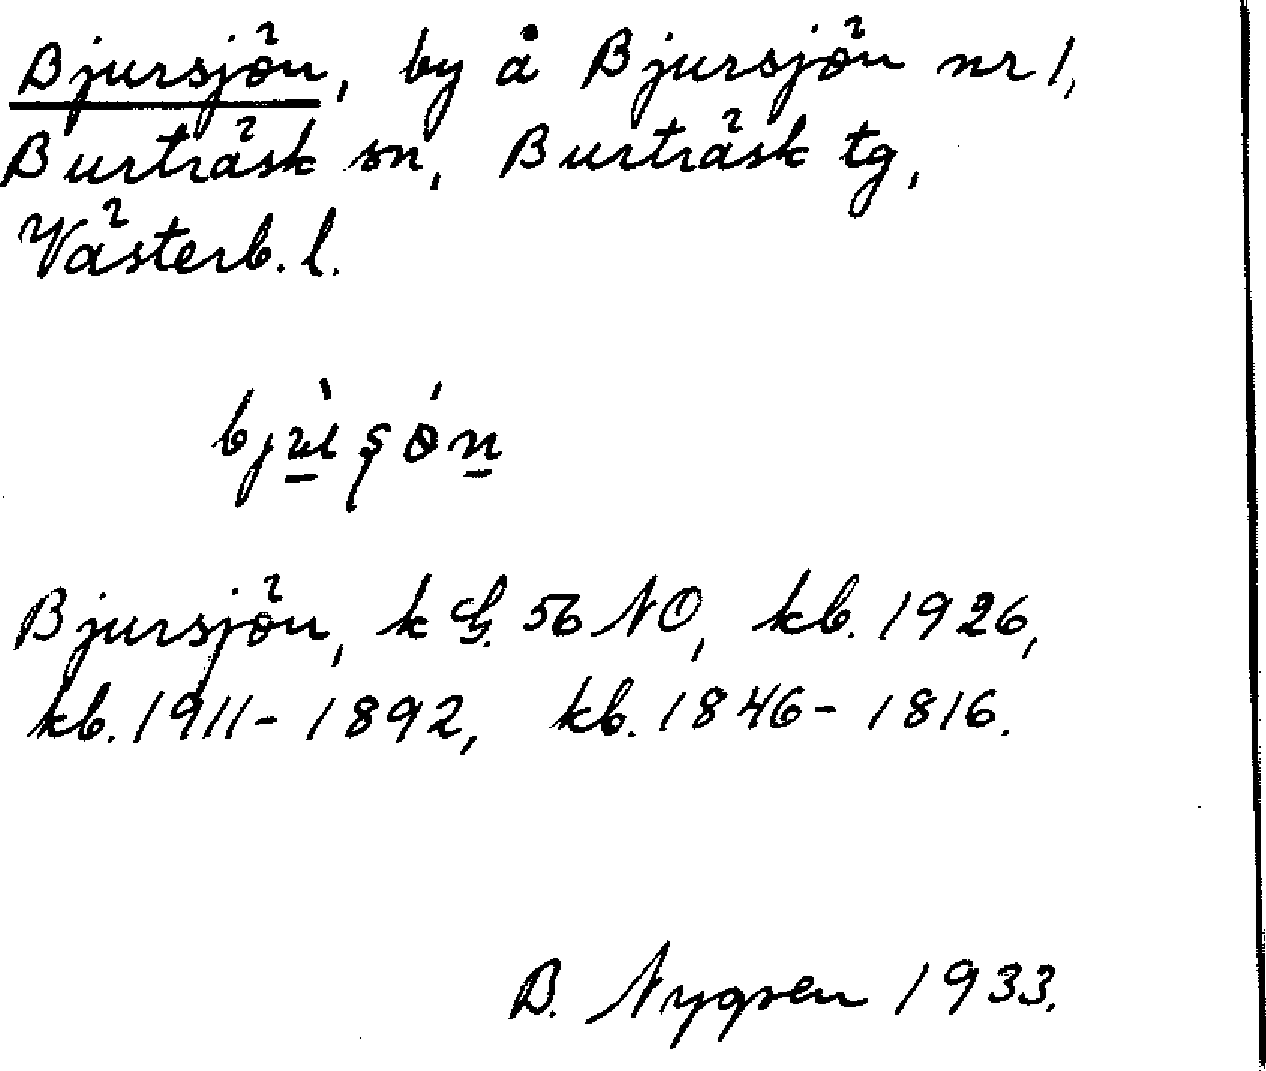 Bjursjön, by å Bjursjön nr 1,
Burträsk sn, Burträsk tg,
Västerb. l.
Bjursjön, k G. 56 NO, kb. 1926,
kb. 1911-1892, kb. 1846-1816.
B. Nygren 1933.